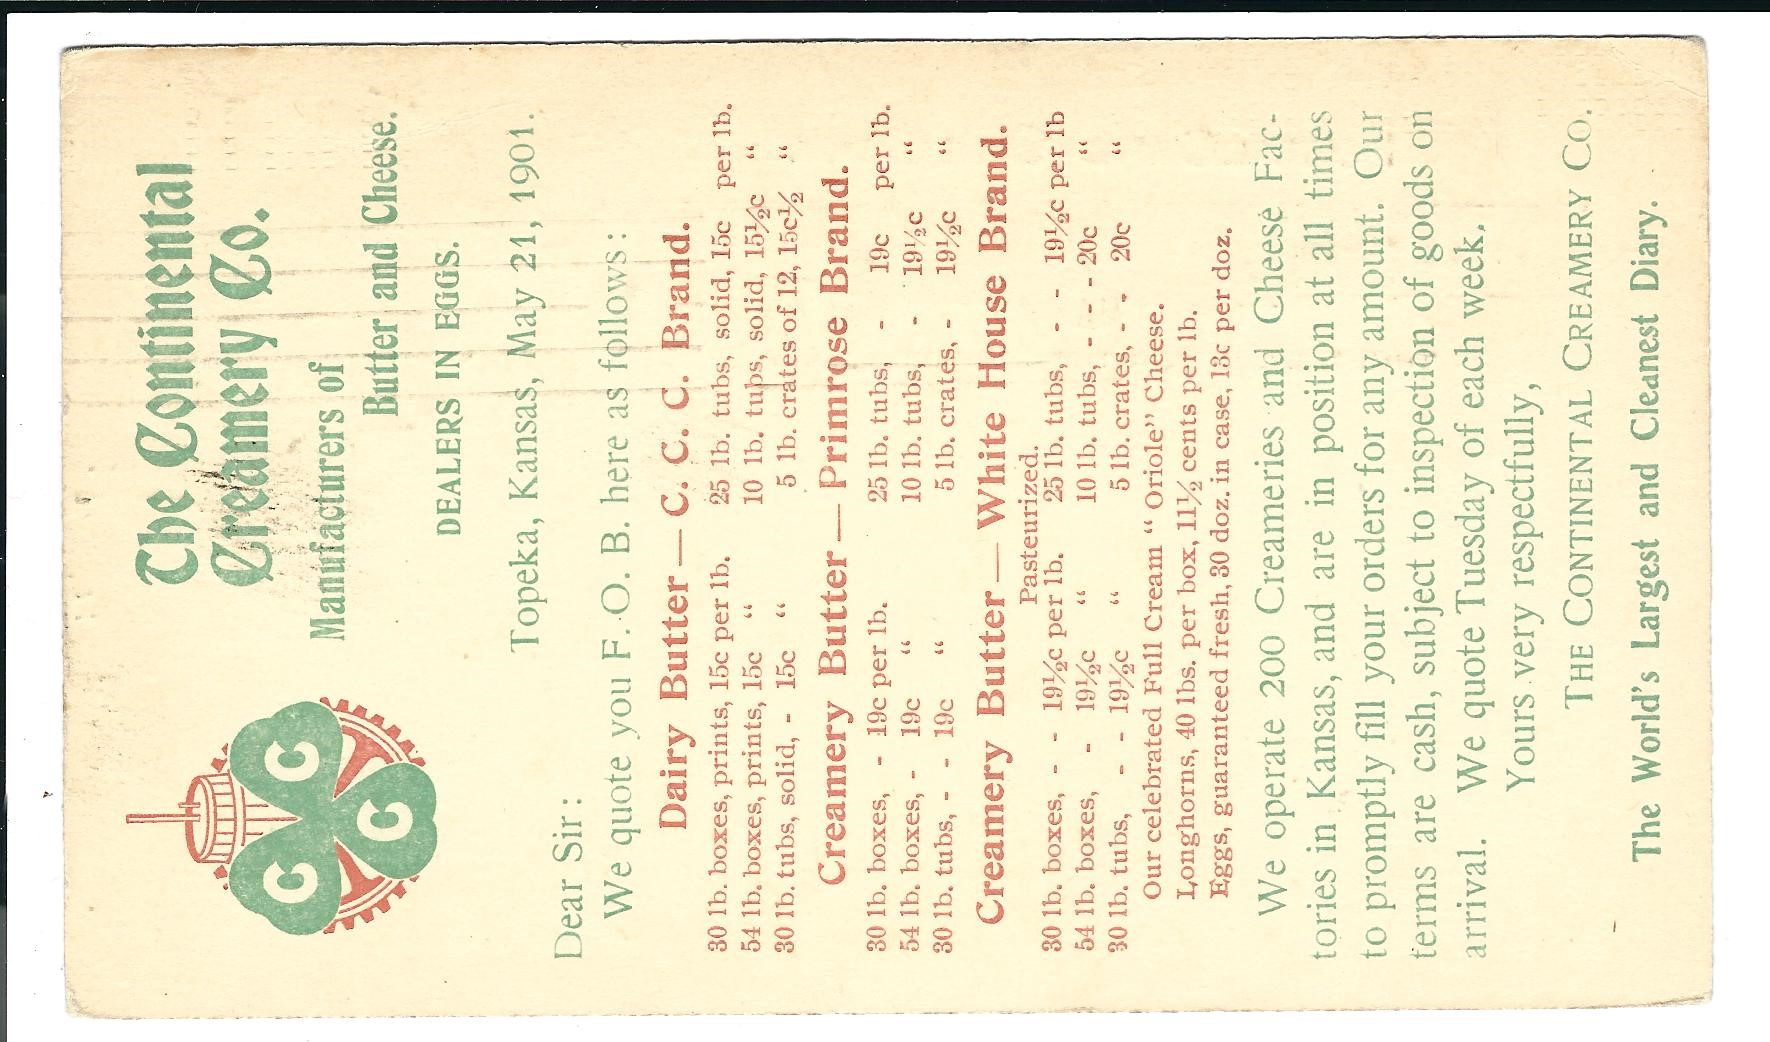 The Continental
Creamery Co.
Manufacturers of
Butter and Cheese.
DEALERS IN EGGS.
C C C
Topeka, Kansas, May 21, 1901.
Dear Sir:
We quote you F. O. B. here as follows:
Dairy Butter — C. C. C. Brand.
30 lb. boxes, prints, 15c per lb. 25 lb. tubs, solid, 15c per lb.
54 lb. boxes, prints, 15c " 10 lb. tubs, solid, 15½c "
30 lb. tubs, solid, - 15c " 5 lb. crates of 12, 15c½ "
Creamery Butter — Primrose Brand.
30 lb. boxes, - 19c per lb. 25 lb. tubs, - 19c per lb.
54 lb. boxes, - 19c " 10 lb. tubs, - 19½c "
30 lb. tubs, - - 19c " 5 lb. crates, - 19½c "
Creamery Butter — White House Brand.
Pasteurized.
30 lb. boxes, - - 19½c per lb. 25 lb. tubs, - - 19½c per lb
54 lb. boxes, - 19½c " 10 lb. tubs, - - - 20c "
30 lb. tubs, - - 19½c " 5 lb. crates, - - 20c "
Our celebrated Full Cream "Oriole" Cheese.
Longhorns, 40 lbs. per box, 11½ cents per lb.
Eggs, guaranteed fresh, 30 doz. in case, 13c per doz.
We operate 200 Creameries and Cheese Fac-
tories in Kansas, and are in position at all times
to promptly fill your orders for any amount. Our
terms are cash, subject to inspection of goods on
arrival. We quote Tuesday of each week.
Yours very respectfully,
THE CONTINENTAL CREAMERY CO.
The World's Largest and Cleanest Diary.